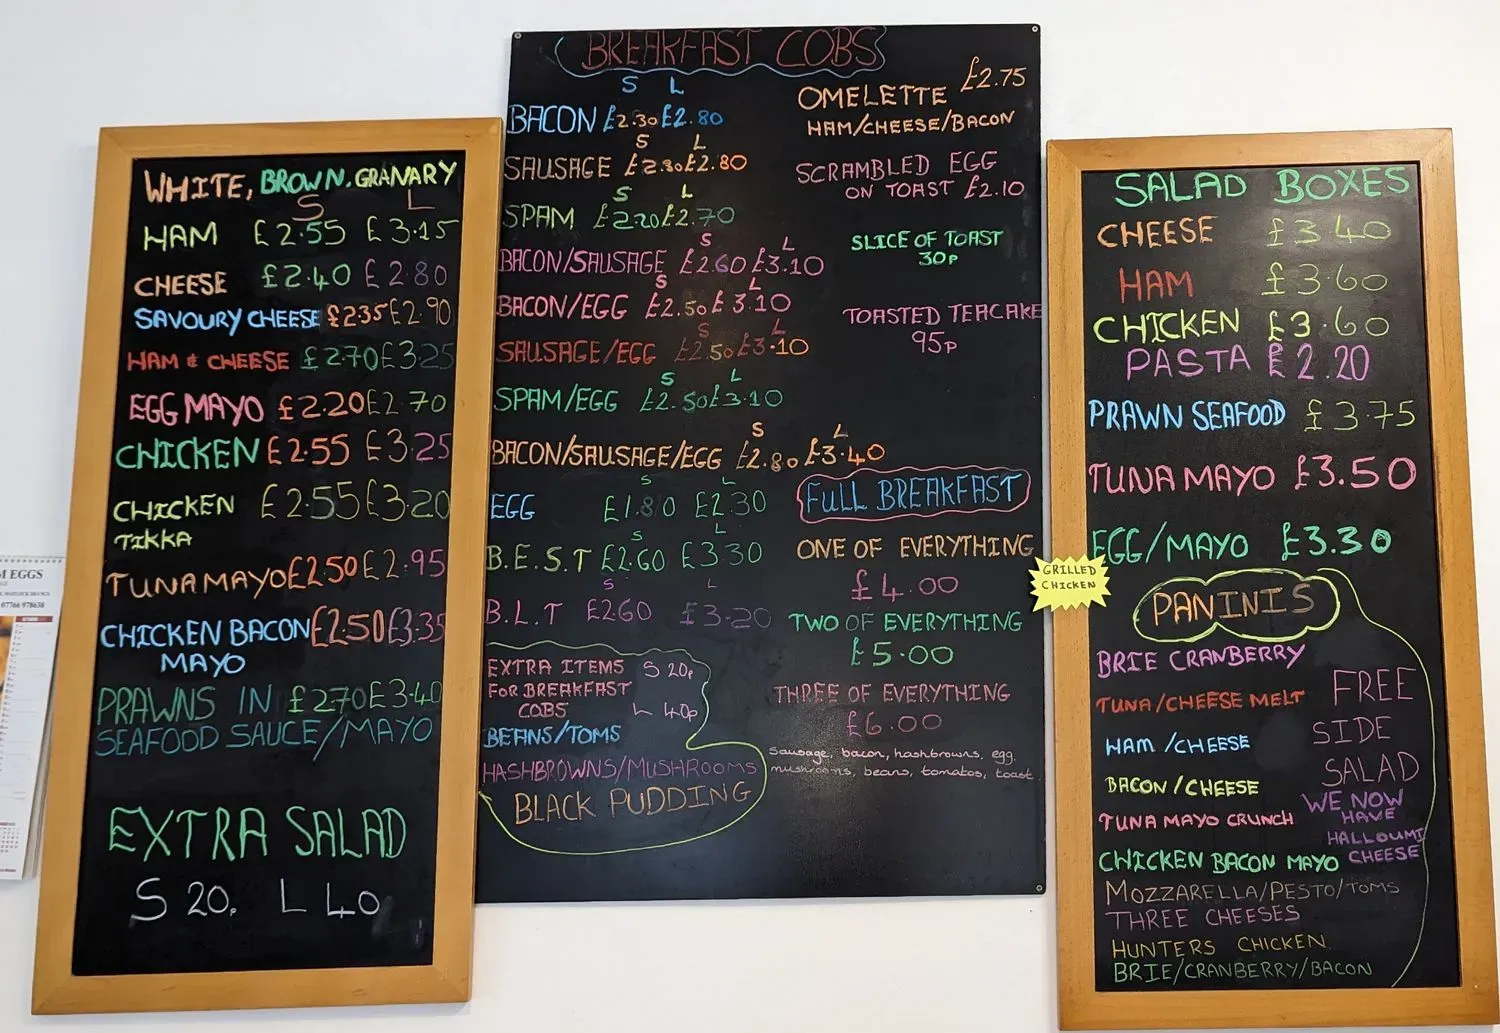 WHITE, BROWN. GRANARY
S L
HAM £2.55 £3.15
CHEESE £2.40 £2.80
SAVOURY CHEESE £2.35 £2.90
HAM & CHEESE £2.70 £3.25
EGG MAYO £2.20 £2.70
CHICKEN £2.55 £3.25
CHICKEN £2.55 £3.20
TIKKA
TUNA MAYO £2.50 £2.95
CHICKEN BACON £2.50 £3.35
MAYO
PRAWNS IN £2.70 £3.40
SEAFOOD SAUCE/MAYO
EXTRA SALAD
S 20. L 40
BREAKFAST COBS
S L
BACON £2.30 £2.80
S L
SAUSAGE £2.30 £2.80
S L
SPAM £2.20 £2.70
S L
BACON/SAUSAGE £2.60 £3.10
S L
BACON/EGG £2.50 £3.10
S L
SAUSAGE/EGG £2.50 £3.10
S L
SPAM/EGG £2.50 £3.10
S L
BACON/SAUSAGE/EGG £2.80 £3.40
S L
EGG £1.80 £2.30
S L
B.E.S.T £2.60 £3.30
S L
B.L.T £2.60 £3.20
EXTRA ITEMS S 20p
FOR BREAKFAST
COBS L 40p
BEANS/TOMS
HASHBROWNS/MUSHROOMS
BLACK PUDDING
OMELETTE £2.75
HAM/CHEESE/BACON
SCRAMBLED EGG
ON TOAST £2.10
SLICE OF TOAST
30p
TOASTED TEACAKE
95p
FULL BREAKFAST
ONE OF EVERYTHING
£4.00
TWO OF EVERYTHING
£5.00
THREE OF EVERYTHING
£6.00
Sausage, bacon, hashbrowns, egg.
mushrooms, beans, tomatos, toast
SALAD BOXES
CHEESE £3.40
HAM £3.60
CHICKEN £3.60
PASTA £2.20
PRAWN SEAFOOD £3.75
TUNA MAYO £3.50
EGG/MAYO £3.30
GRILLED
CHICKEN
PANINIS
BRIE CRANBERRY
TUNA/CHEESE MELT
HAM/CHEESE
BACON/CHEESE
TUNA MAYO CRUNCH
CHICKEN BACON MAYO
MOZZARELLA/PESTO/TOMS
THREE CHEESES
HUNTERS CHICKEN
BRIE/CRANBERRY/BACON
FREE
SIDE
SALAD
WE NOW
HAVE
HALLOUMI
CHEESE
EGGS
07766 978638